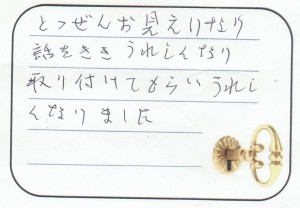 とつぜんお見えになり
話をききうれしくなり
取り付けてもらいうれし
くなりました